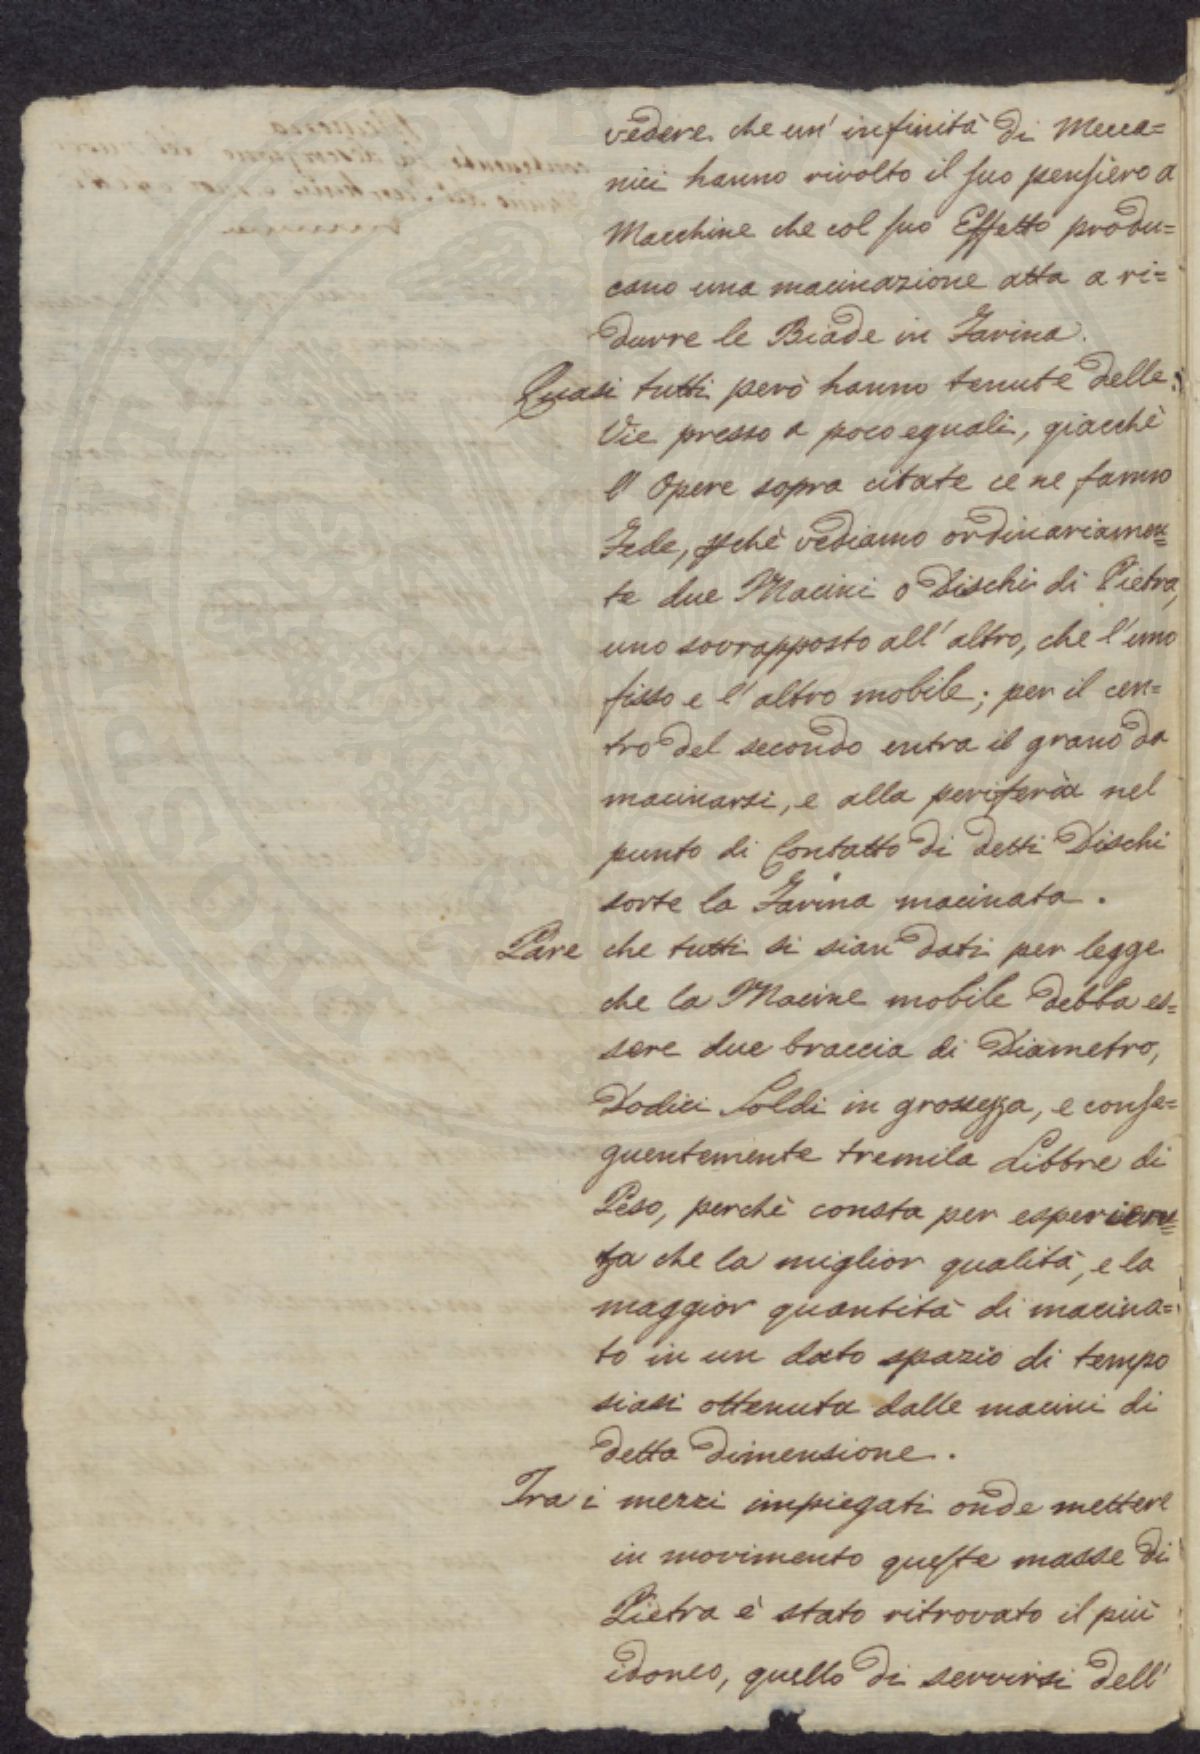 vedere che un' infinità di Mecca=
nici hanno rivolto il suo pensiero a
Macchine che col suo Effetto produ=
cano una macinazione atta a ri=
durre le Biade in Farina.
Quasi tutti però hanno tenute delle
Vie presso a poco eguali, giacchè
l' Opere sopra citate ce ne fanno
Fede, pchè vediamo ordinariamen=
te due Macini o Dischi di Pietra,
uno sovrapposto all' altro, che l' uno
fisso e l' altro mobile; per il cen=
tro del secondo entra il grano da
macinarsi, e alla periferia nel
punto di Contatto di detti Dischi
sorte la Farina macinata.
Pare che tutti si sian dati per legge
che la Macine mobile debba es=
sere due braccia di Diametro,
Dodici Soldi in grossezza, e conse=
guentemente tremila Libbre di
Peso, perchè consta per esperien=
za che la miglior qualità, e la
maggior quantità di macina=
to in un dato spazio di tempo
siasi ottenuta dalle macini di
detta Dimensione.
Tra i mezzi impiegati onde mettere
in movimento queste masse di
Pietra è stato ritrovato il più
idoneo, quello di servirsi dell'